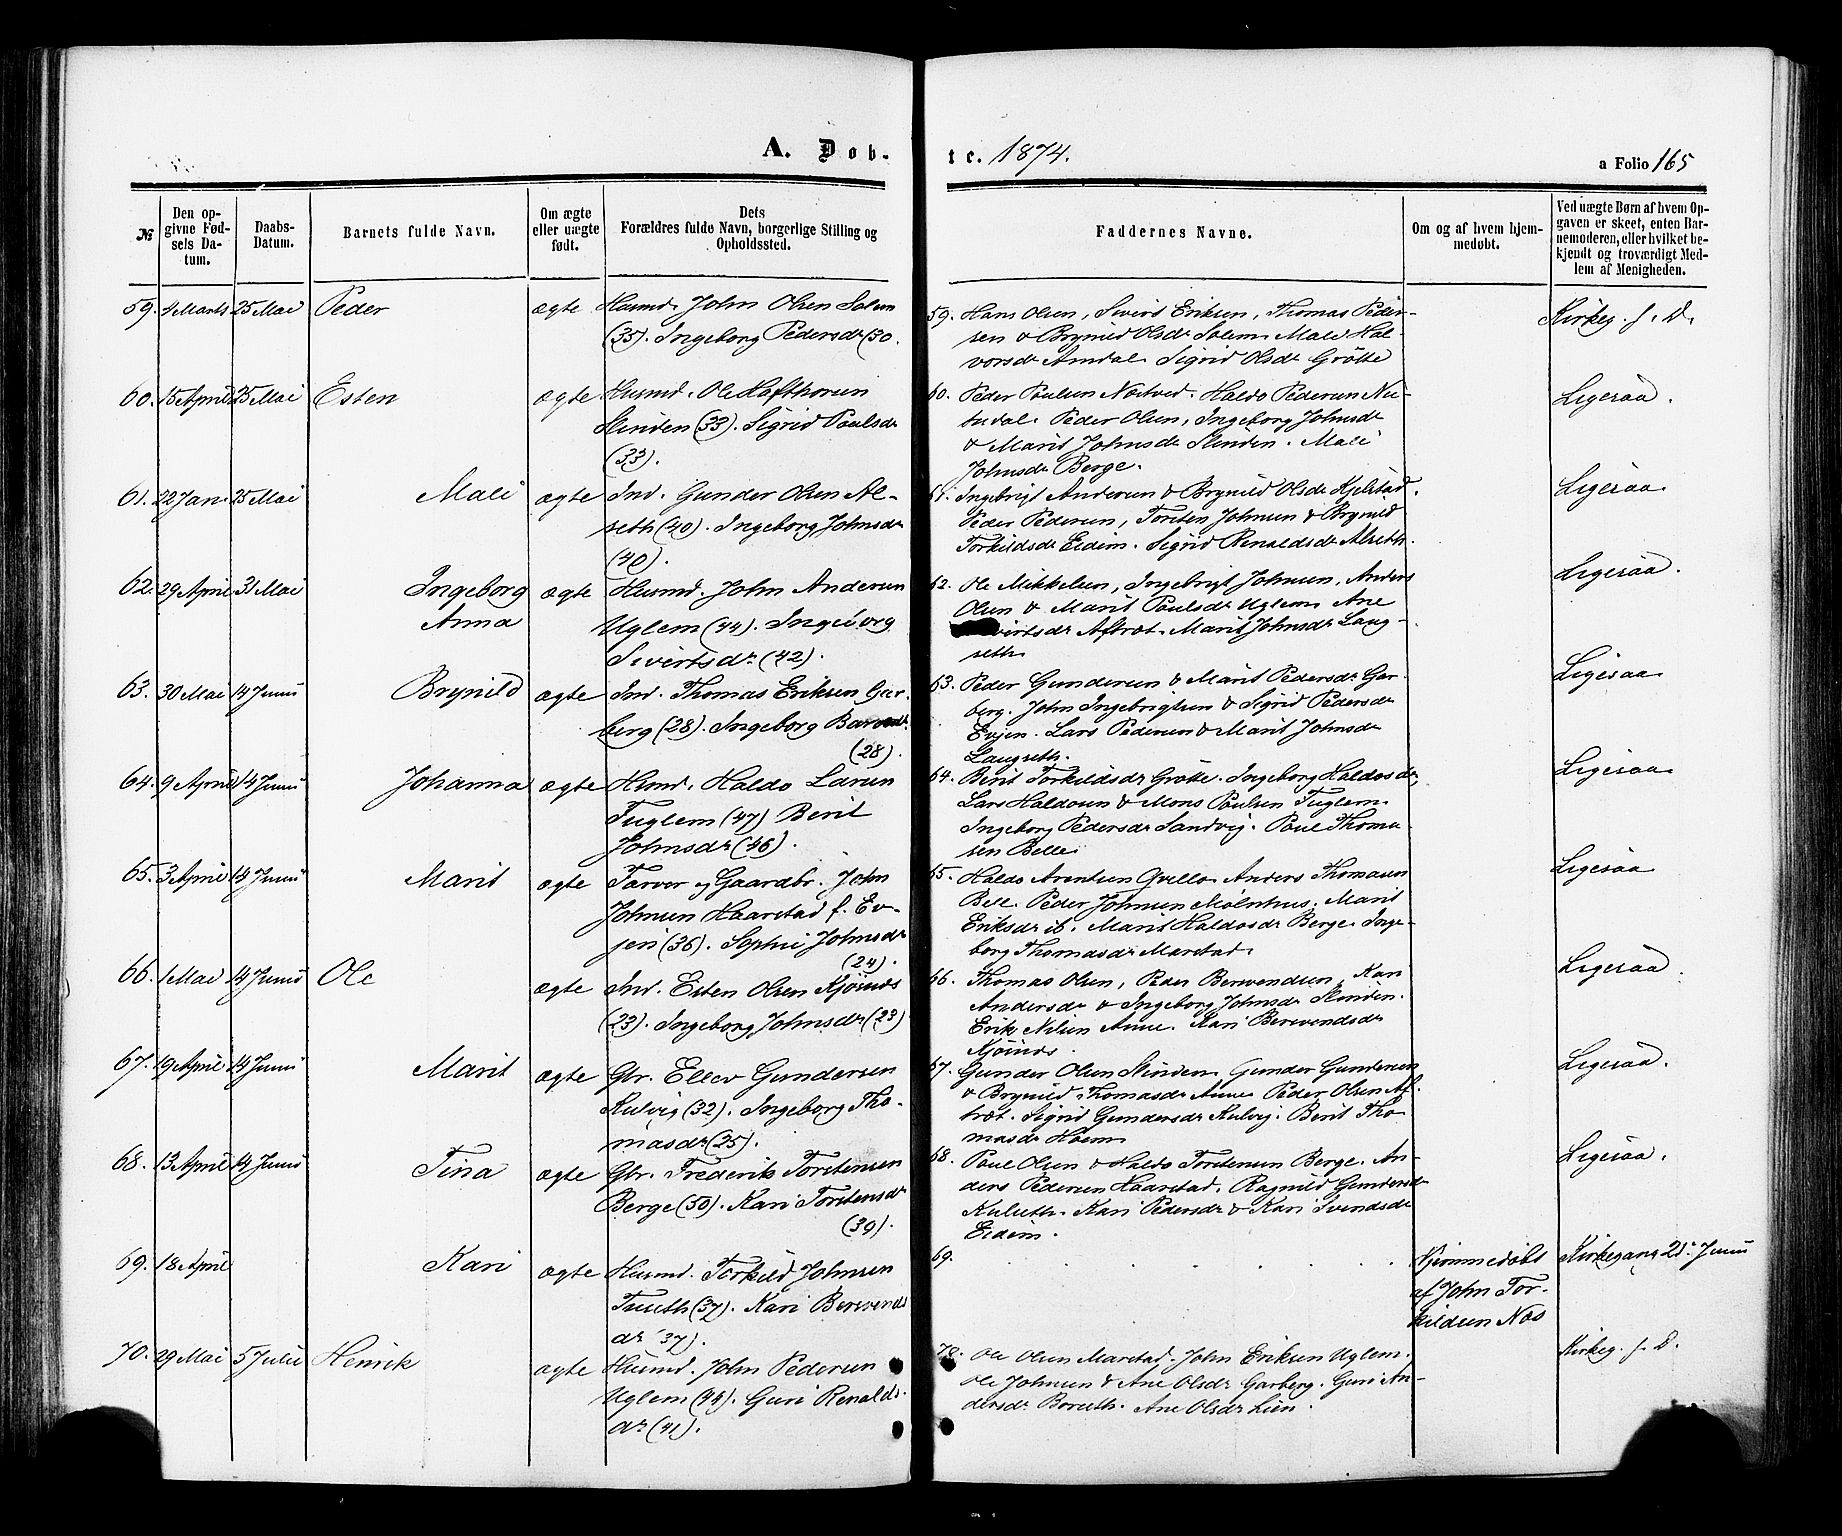 A. Døb-
te. 1874.
a Folio 165
№
Den op-
givne Fød-
sels Da-
tum.
Daabs-
Datum.
Barnets fulde Navn.
Om ægte
eller uægte
født.
Dets
Forældres fulde Navn, borgerlige Stilling og
Opholdssted.
Faddernes Navne.
Om og af hvem hjem-
medøbt.
Ved uægte Børn af hvem Op-
gaven er skeet, enten Bar-
nemoderen, eller hvilket be-
kjendt og troværdigt Med-
lem af Menigheden.
59. 4 Marts 25 Mai Peder ægte Husmd. John Olsen Salem
(35). Ingeborg Pedersdr (30.
59. Hans Olsen, Sivert Eriksen, Thomas Peder-
sen & Brynild Olsdr Salem. Mali Hal-
vorsdr Amdal. Sigrid Olsdr Grötte
Kirkeg. s. D.
60. 15 April 25 Mai Esten ægte Husmd. Ole Hafthorsen
Slinden (33). Sigrid Poulsdr
(33).
60. Peder Poulsen Nostved. Haldo Pedersen
Peder Olsen, Ingeborg Johnsdr
& Marit Johnsdr Slinden. Mali
Johnsdr Berge.
Ligesaa.
61. 22 Jan. 25 Mai Mali ægte Ind. Gunder Olsen Al-
seth (40). Ingeborg Johnsdr
(40).
61. Ingebrigt Andersen & Brynild Olsdr Kjelstad.
Peder Pedersen, Torsten Johnsen & Brynild
Torkildsdr Eidem. Sigrid Renaldsdr Alseth.
Ligesaa
62. 29 April 31 Mai Ingeborg
Anna ægte Husmd. John Andersen
Uglem (44). Ingeborg
Sivertsdr (42).
62. Ole Mikkelsen, Ingebrigt Johnsen, Anders
Olsen & Marit Poulsdr Uglem. Ane
Aftræt. Marit Johnsdr Lang-
seth
Ligesaa.
63. 30 Mai 14 Juni Brynild ægte Ind. Thomas Eriksen Gar-
berg (28). Ingeborg
(28).
63. Peder Gundersen & Marit Pedersdr Gar-
berg. John Ingebrigtsen & Sigrid Pedersdr
Evjen. Lars Pedersen & Marit Johnsdr
Langseth.
Ligesaa
64. 9 April 14 Juni Johanna ægte Husmd. Haldo Larsen
Fuglem (47) Berit
Johnsdr (46).
64. Berit Torkildsdr Grötte. Ingeborg Haldosdr,
Lars Haldosen & Mons Poulsen Fuglem.
Ingeborg Pedersdr Sandvig. Poul Thoma-
sen Belle
Ligesaa
65. 3 April 14 Juni Marit ægte Farver og Gaardbr. John
Johnsen Haarstad f. Ev-
jen (36). Sophie Johnsdr
(24).
65. Haldo Arentsen Qvello. Anders Thomasen
Bell. Peder Johnsen Mölnhus. Marit
Eriksdr ib. Marit Haldosdr Berge. Inge-
borg Thomasdr Marstad.
Ligesaa
66. 1 Mai 14 Juni Ole ægte Ind. Esten Olsen Kjösnes
(23). Ingeborg Johnsdr (23)
66. Thomas Olsen, Peder Bersvendsen, Kari
Andersdr & Ingeborg Johnsdr Slinden.
Erik Nilsen Aune. Kari Bersvendsdr
Kjösnes.
Ligesaa
67. 19 April 14 Juni Marit ægte Gbr. Ellev Gundersen
Kulvig (32). Ingeborg Tho-
masdr (25).
67. Gunder Olsen Slinden. Gunder Gundersen
& Brynild Thomasdr Aune. Peder Olsen Af-
træt. Sigrid Gundersdr Kulvig. Berit Tho-
masdr Hoem
Ligesaa.
68. 13 April 14 Juni Tina ægte Gbr. Frederik Torstensen
Berge (50). Kari Torstensdr
(39).
68. Poul Olsen & Haldo Torstensen Berge. An-
ders Pedersen Haarstad. Ragnild Gundersdr
Kulseth. Kari Pedersdr & Kari Svendsdr
Eidem.
Ligesaa.
69. 18 April Kari ægte Husmd. Torkild Johnsen
Tuseth (37). Kari Bersvends
dr (37).
69.
Hjemmedöbt
af John Tor-
kildsen Næs
Kirkegang 21. Juni
70. 29 Mai 5 Julii Henrik ægte Husmd. John Pedersen
Uglem (44). Guri Renalds-
dr (41).
70. Ole Olsen Marstad. John Eriksen Uglem.
Ole Johnsen & Ane Olsdr Garberg. Guri An-
dersdr Borseth. Ane Olsdr Lien.
Kirkeg. s. D.